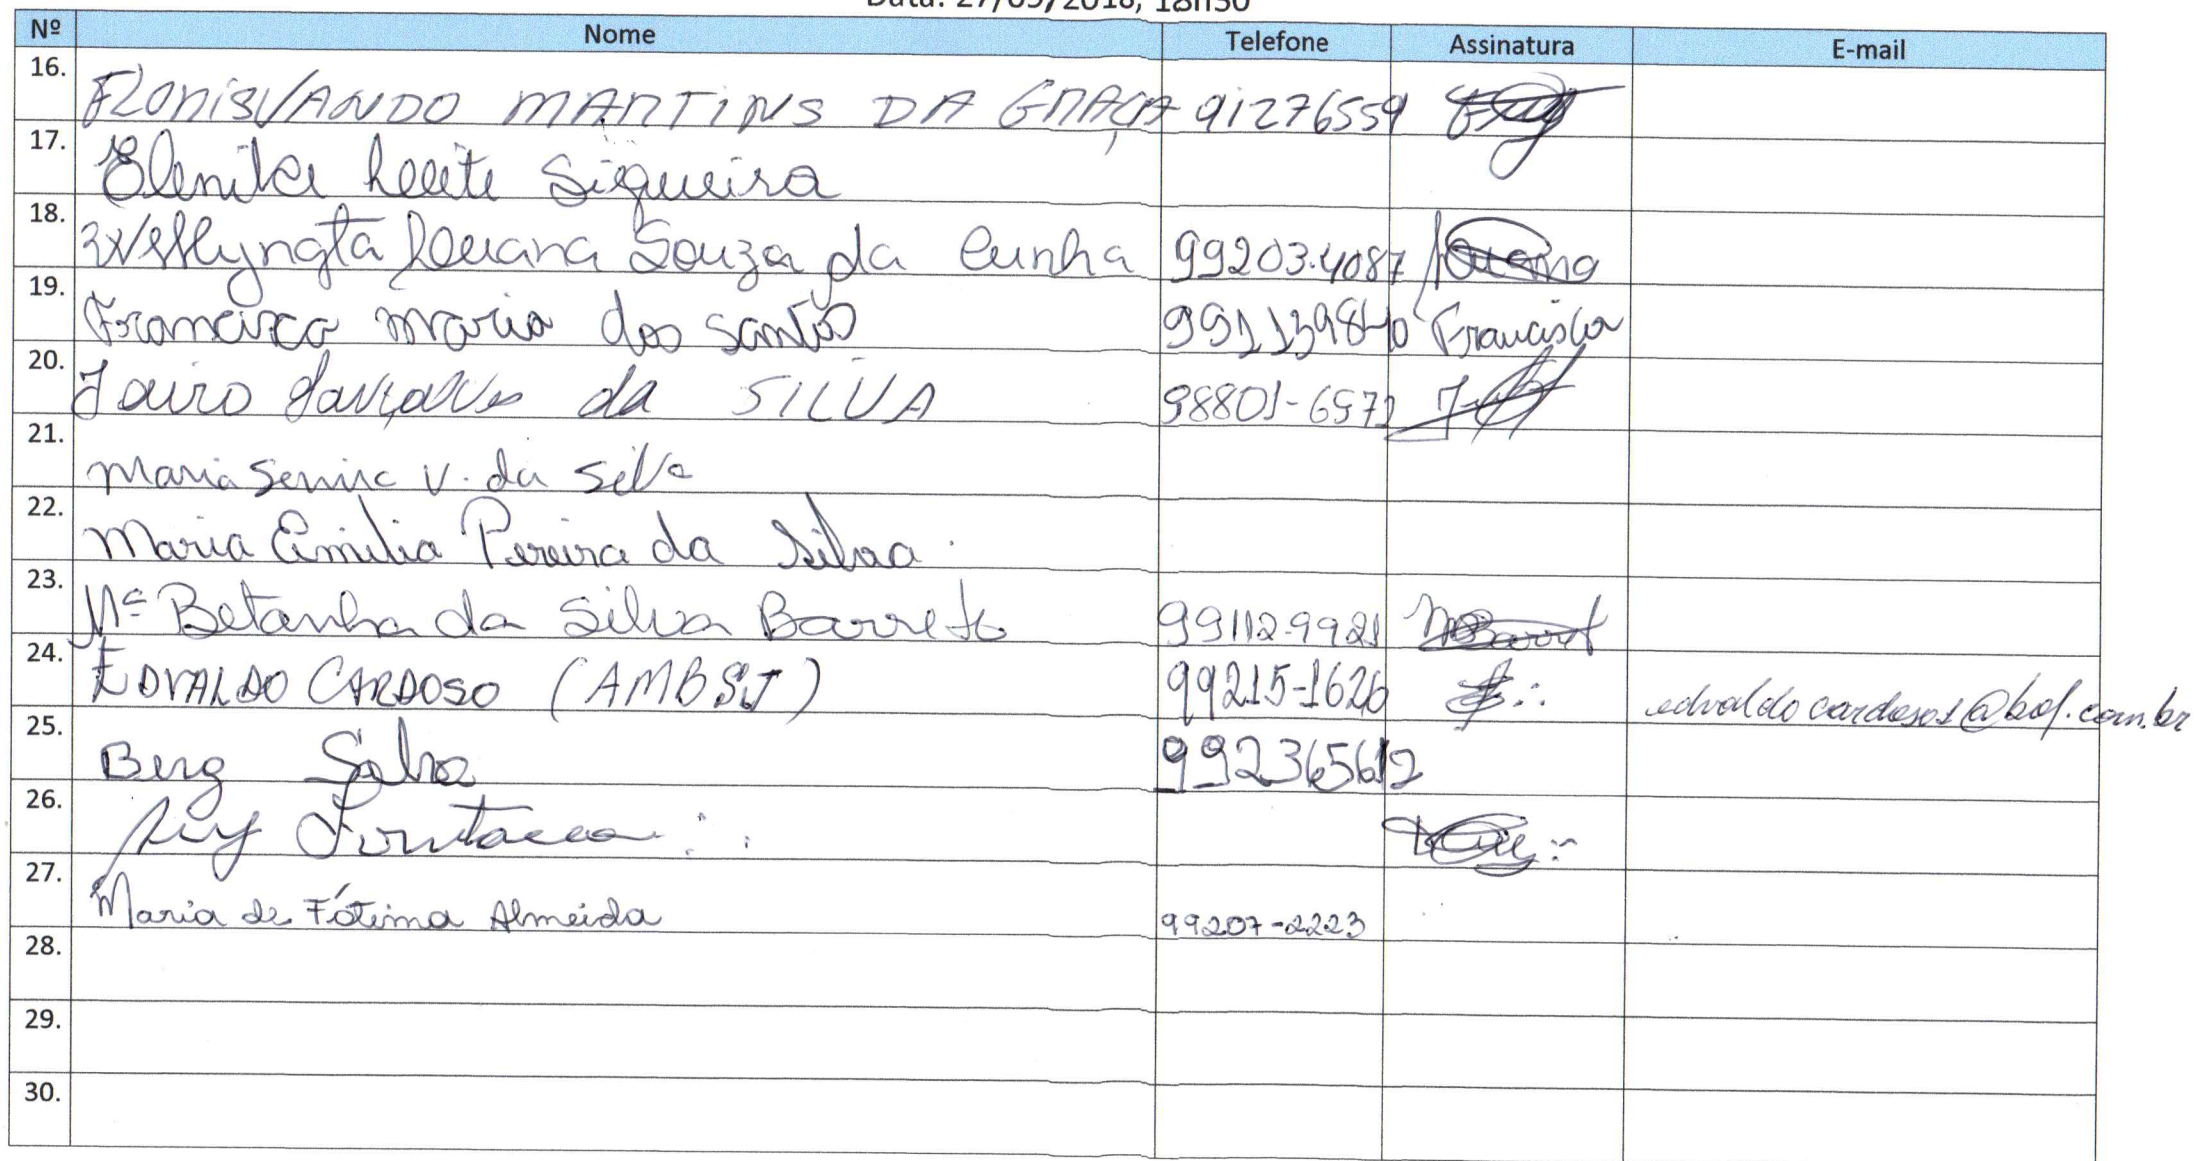 Data: 27/09/2018, 18h30
Nº Nome Telefone Assinatura E-mail
16. FLORISVANDO MARTINS DA GRAÇA 91276559
17. Elenita Leite Siqueira
18. Wellyngta Louana Souza da Cunha 99203.4087
19. Francisca maria dos santos 991139840 Francisca
20. Jairo Gonçalves da SILVA 98801-6972
21. Maria V. da Silva
22. Maria Emilia Pereira da Silva
23. Mª Betanha da Silva Barreto 99112-9921
24. EDVALDO CARDOSO (AMBSJ) 99215-1626 edvaldocardoso1@bol.com.br
25. Berg Silva 992365612
26.
27. Maria de Fátima Almeida 99207-2223
28.
29.
30.